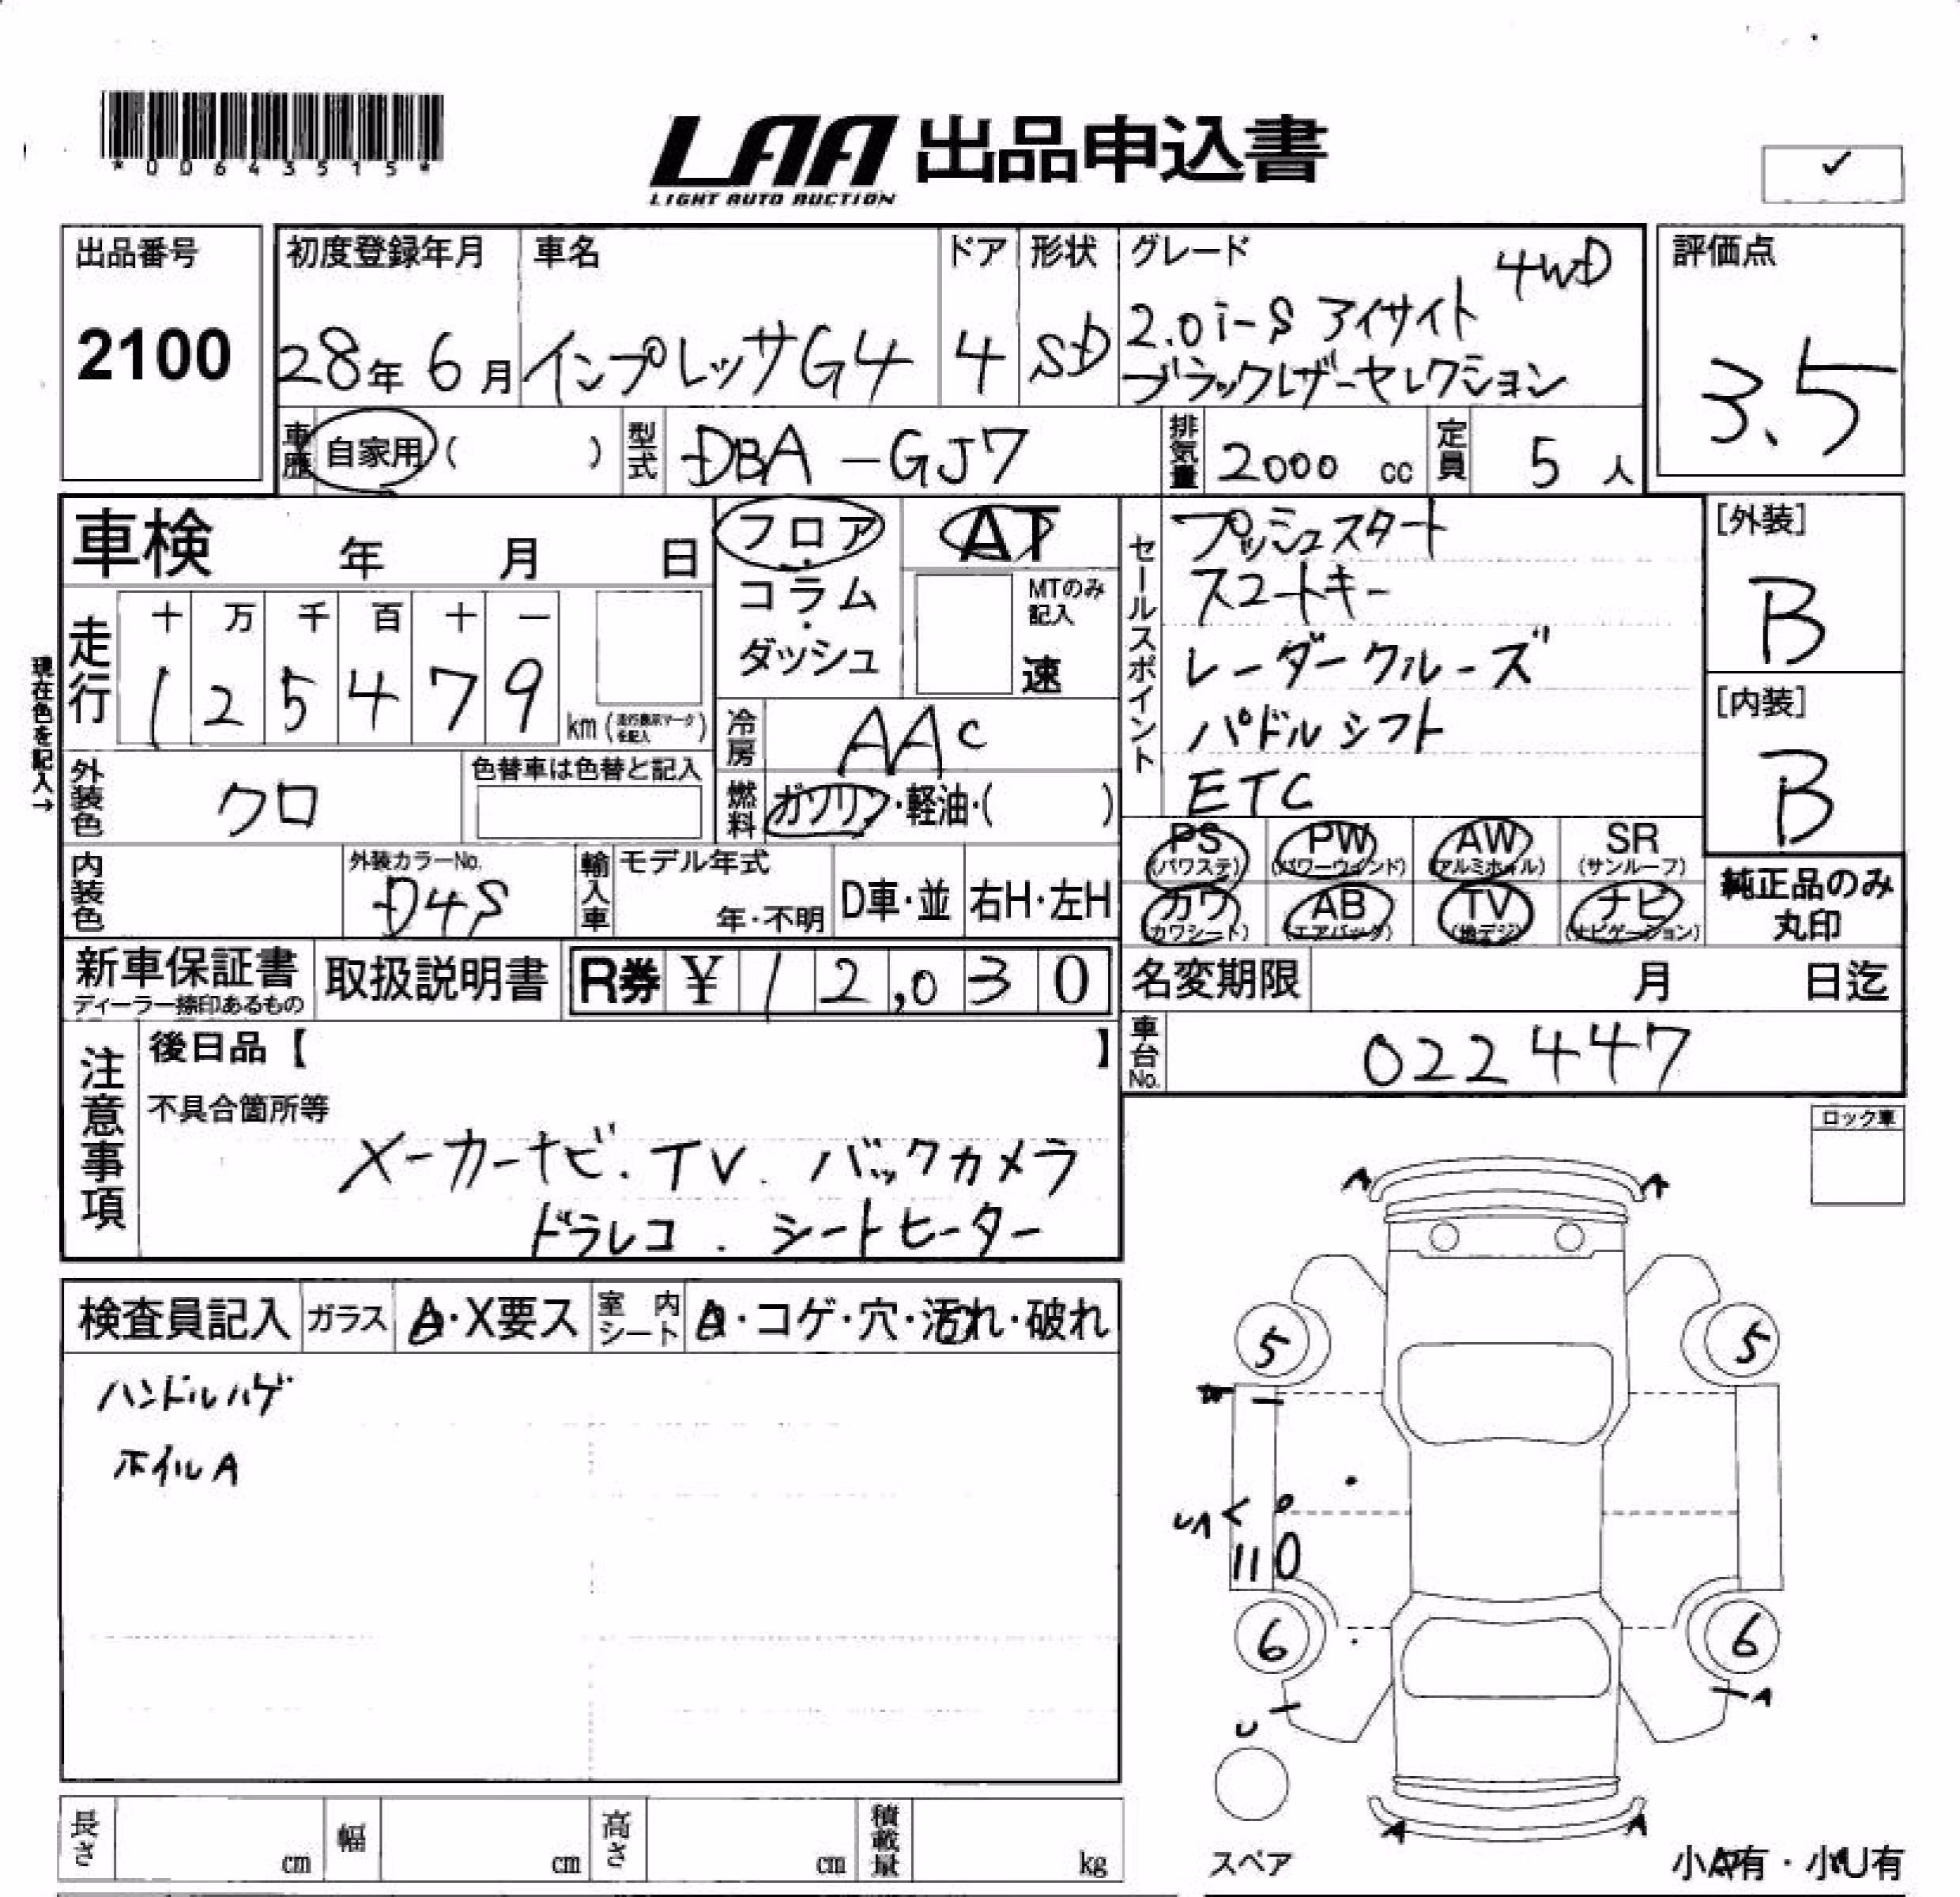 *00643515*
LAA 出品申込書
LIGHT AUTO AUCTION
✓
出品番号
2100
初度登録年月
28年 6月
車名
インプレッサG4
ドア
4
形状
SD
グレード
4WD
2.0i-S アイサイト
ブラックレザーセレクション
評価点
3.5
車歴
自家用 ( )
型式
DBA-GJ7
排気量
2000 cc
定員
5 人
車検 年 月 日
フロア・
コラム
・
ダッシュ
AT
MTのみ
記入
速
走行
十 万 千 百 十 一
1 2 5 4 7 9
km (走行表示マークを記入)
現在色を記入→
外装色
クロ
色替車は色替と記入
冷房
AAC
燃料
ガソリン・軽油・( )
セールスポイント
プッシュスタート
スマートキー
レーダークルーズ
パドルシフト
ETC
[外装]
B
[内装]
B
内装色
外装カラーNo.
D4S
輸入車
モデル年式
年・不明
D車・並
右H・左H
PS
(パワステ)
PW
(パワーウィンド)
AW
(アルミホイル)
SR
(サンルーフ)
カワ
(カワシート)
AB
(エアバック)
TV
(地デジ)
ナビ
(ナビゲーション)
純正品のみ
丸印
新車保証書
ディーラー捺印あるもの
取扱説明書
R券 ¥ 12,030
名変期限 月 日迄
車台No.
022447
注意事項
後日品【 】
不具合箇所等
メーカーナビ. TV. バックカメラ
ドラレコ . シートヒーター
ロック車
検査員記入
ガラス
A・X要ス
室内シート
A・コゲ・穴・汚れ・破れ
ハンドルハゲ
ホイルA
A A
5 5
6 6
U A
A A
スペア
小A有・小U有
長さ cm
幅 cm
高さ cm
積載量 kg